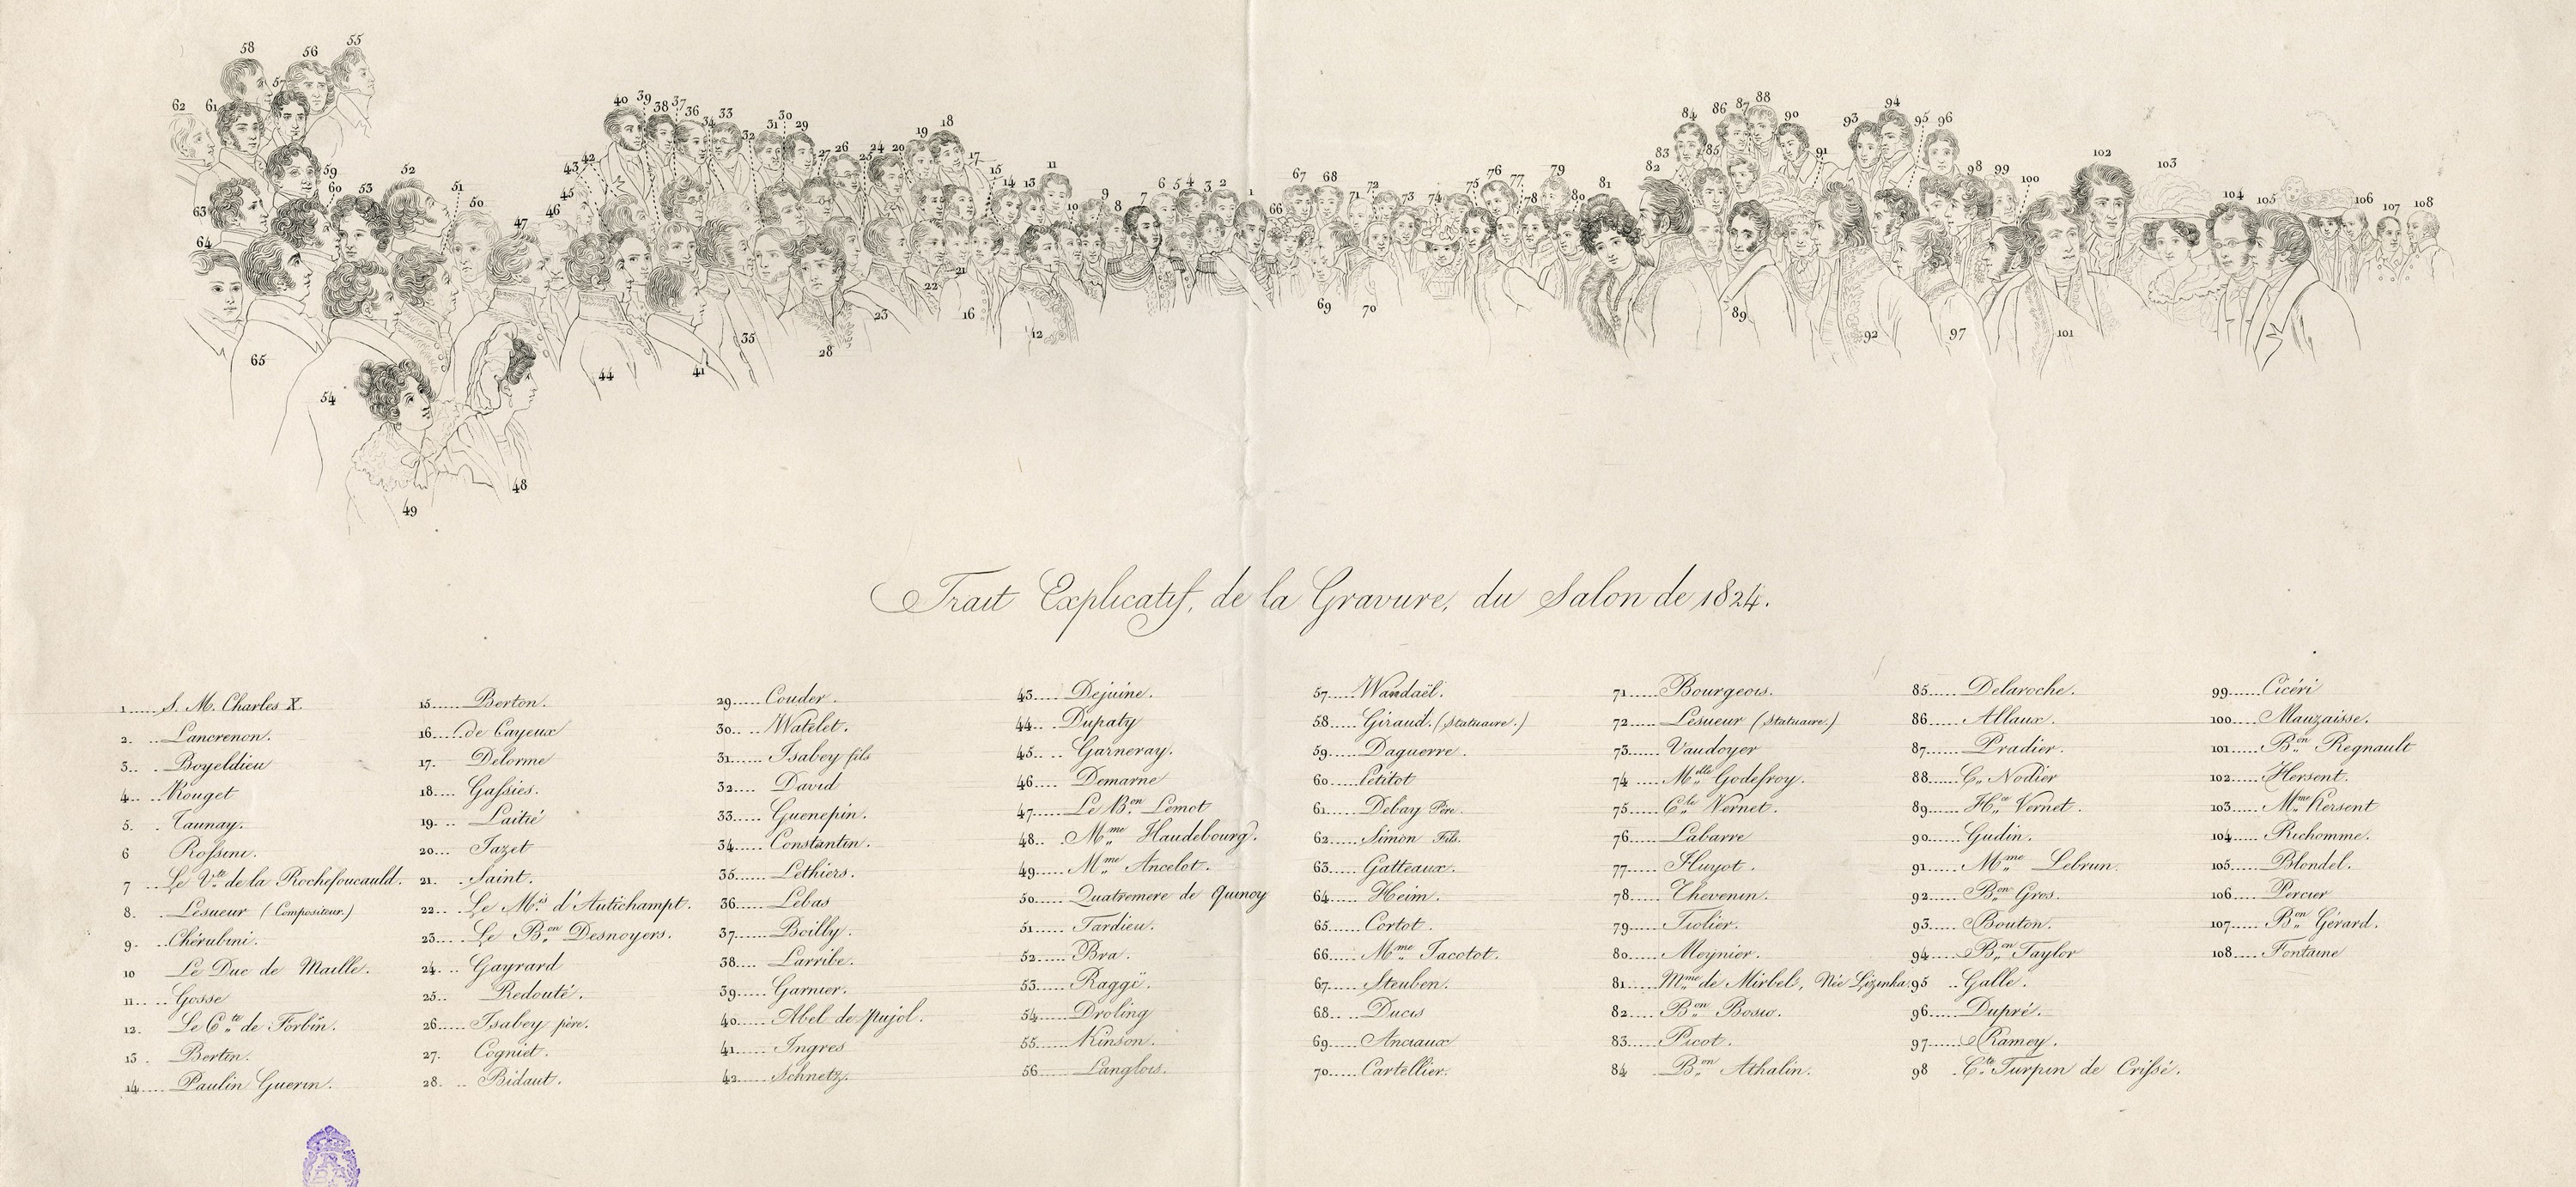 Trait Explicatif, de la Gravure, du Salon de 1824.
1 S. M. Charles X.
2 Lancrenon.
3 Boyeldieu
4 Rouget
5 Taunay.
6 Rossini.
7 Le V.te de la Rochefoucauld.
8 Lesueur (Compositeur)
9 Chérubini.
10 Le Duc de Maille.
11 Gosse
12 Le C.te de Forbin.
13 Bertin.
14 Paulin Guerin.
15 Berton.
16 de Cayeux
17 Delorme
18 Gassies.
19 Laitié
20 Jazet
21 Saint.
22 Le M.is d'Autichampt.
23 Le B.on Desnoyers.
24 Gayrard
25 Redouté.
26 Isabey père.
27 Cogniet.
28 Bidaut.
29 Couder.
30 Watelet.
31 Isabey fils
32 David
33 Guenepin.
34 Constantin.
35 Lethiers.
36 Lebas
37 Boilly.
38 Larribe.
39 Garnier.
40 Abel de Pujol.
41 Ingres
42 Schnetz.
43 Dejuine.
44 Dupaty
45 Garneray.
46 Demarne
47 Le B.on Lemot
48 M.me Haudebourg.
49 M.me Ancelot.
50 Quatremere de Quincy
51 Tardieu.
52 Bra.
53 Raggi.
54 Droling
55 Kinson.
56 Langlois.
57 Wandaël.
58 Giraud. (Statuaire.)
59 Daguerre.
60 Petitot
61 Debay Père.
62 Simon Fils.
63 Gatteaux.
64 Heim.
65 Cortot.
66 M.me Jacotot.
67 Steuben.
68 Ducis
69 Anciaux
70 Cartellier.
71 Bourgeois.
72 Lesueur (Statuaire.)
73 Vaudoyer
74 M.elle Godefroy.
75 C.le Vernet.
76 Labarre
77 Huyot.
78 Thevenin.
79 Tiolier.
80 Meynier.
81 M.me de Mirbel, Née Lizinka.
82 B.on Bosio.
83 Picot.
84 B.on Athalin.
85 Delaroche.
86 Allaux.
87 Pradier.
88 C. Nodier
89 H.ce Vernet.
90 Gudin.
91 M.me Lebrun.
92 B.on Gros.
93 Bouton.
94 B.on Taylor
95 Galle.
96 Dupré.
97 Ramey.
98 C.te Turpin de Crissé.
99 Cicéri
100 Mauzaisse.
101 B.on Regnault
102 Hersent.
103 M.me Hersent
104 Richomme.
105 Blondel.
106 Percier
107 B.on Gérard.
108 Fontaine